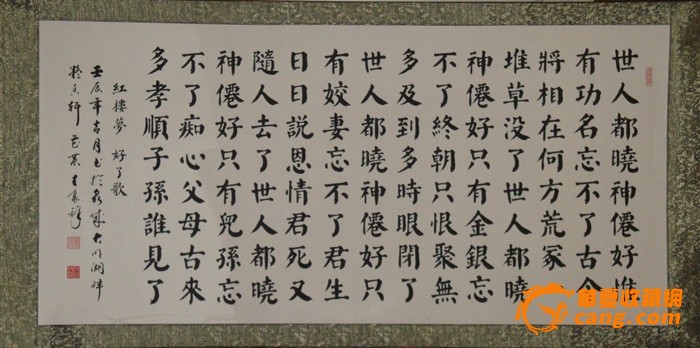 世人都曉神僊好惟
有功名忘不了古今
將相在何方荒冢一
堆草没了世人都曉
神僊好只有金銀忘
不了終朝只恨聚無
多及到多時眼閉了
世人都曉神僊好只
有姣妻忘不了君生
日日説恩情君死又
隨人去了世人都曉
神僊好只有兒孫忘
不了痴心父母古來
多孝順子孫誰見了
紅樓夢 好了歌
壬辰年吉月書於泉城大明湖畔
軒
華夏收藏網
cang.com